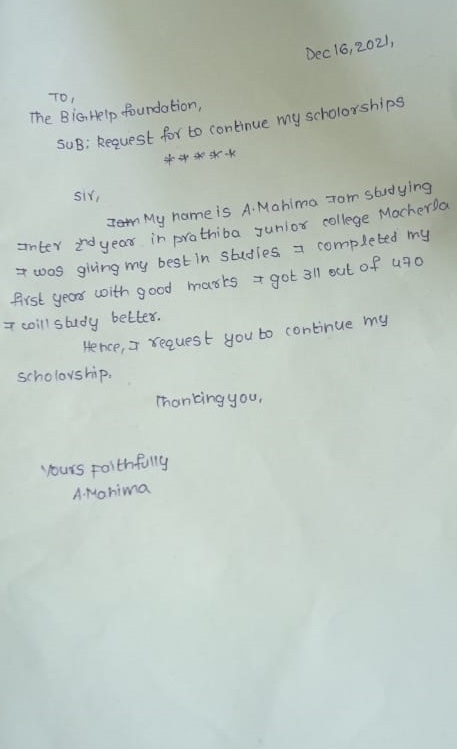 Dec 16, 2021,
TO,
The BigHelp foundation,
SUB: Request for to continue my scholorships
*****
sir,
My name is A.Mahima Iam studying
Inter 2nd year in prathiba Junior college Macherla
I was giving my best in studies I completed my
first year with good marks I got 311 out of 470
I will study better.
Hence, I request you to continue my
scholorship.
Thanking you,
Yours faithfully
A.Mahima